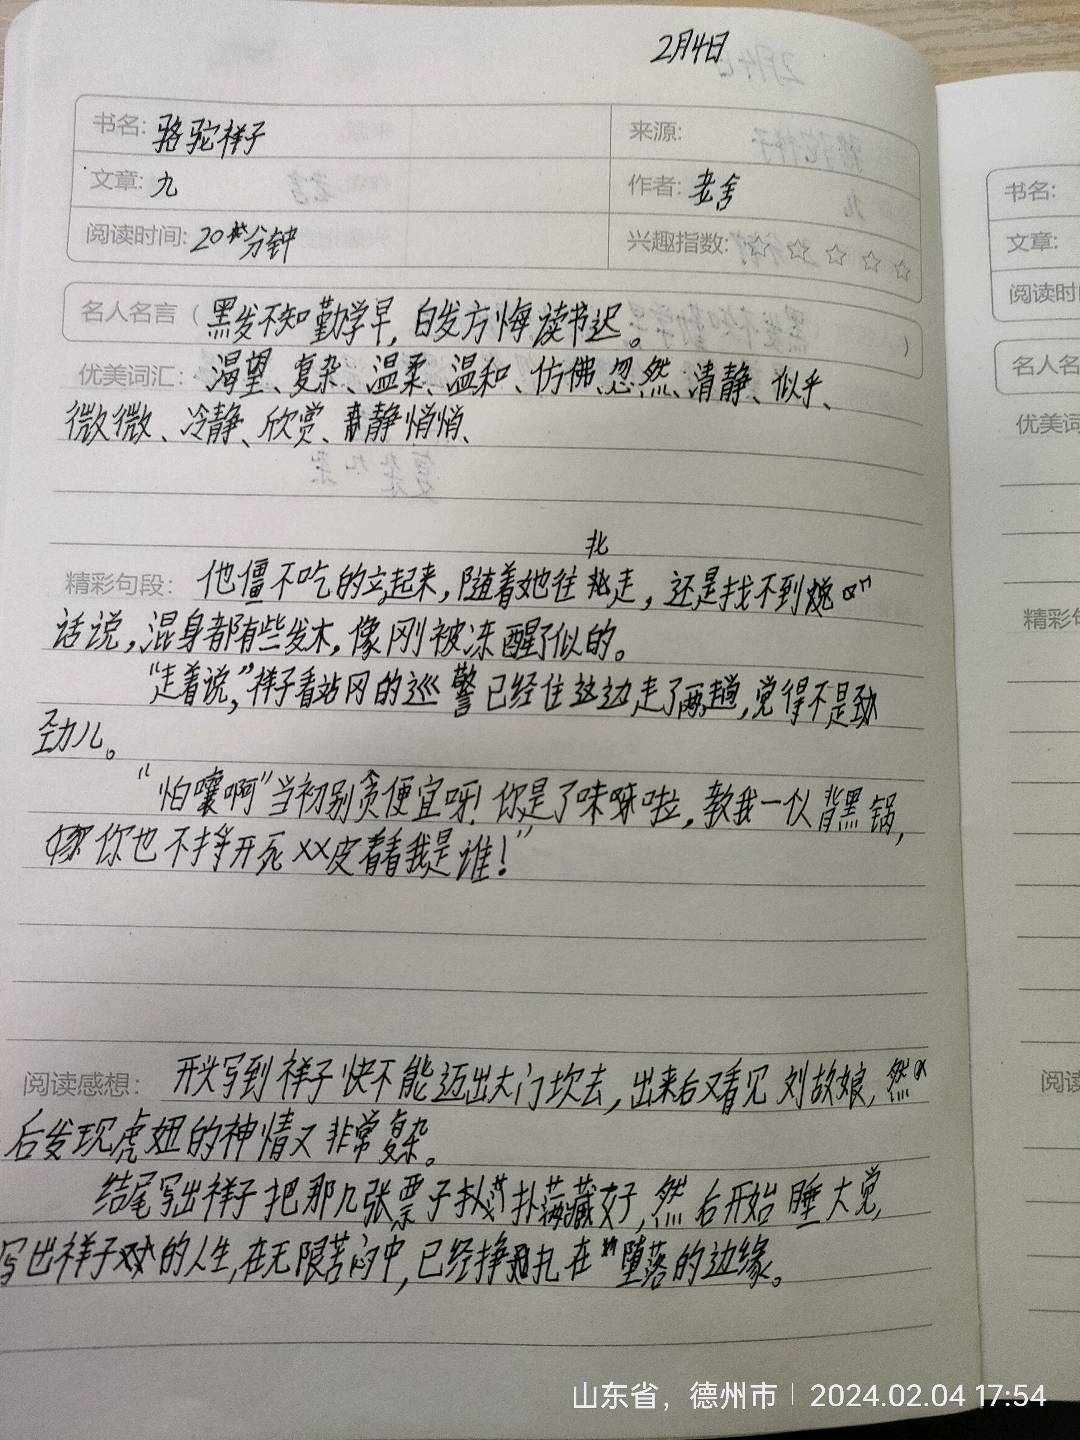 2月4日
书名: 骆驼祥子 来源:
文章: 九 作者: 老舍
阅读时间: 20分钟 兴趣指数: ☆ ☆ ☆ ☆ ☆
名人名言（黑发不知勤学早，白发方悔读书迟。）
优美词汇: 渴望、复杂、温柔、温和、仿佛、忽然、清静、似乎、
微微、冷静、欣赏、静悄悄、
北
精彩句段: 他僵不吃的立起来，随着她往走，还是找不到
话说，混身都有些发木，像刚被冻醒了似的。
“走着说，”祥子看站冈的巡警已经往这边走了两趟，觉得不是劲
劲儿。
“怕嚷啊”当初别贪便宜呀！你是了味啦，教我一个人背黑锅，
你也不挣开死××皮看看我是谁！”
阅读感想: 开头写到祥子快不能迈出大门坎去，出来后又看见刘故娘，然
后发现虎妞的神情又非常复杂。
结尾写出祥子把那几张票子扑藏好，然后开始睡大觉，
写出祥子的人生，在无限苦闷中，已经挣扎在堕落的边缘。
书名:
文章:
阅读时
名人名
优美词
精彩句
阅读
山东省，德州市 | 2024.02.04 17:54